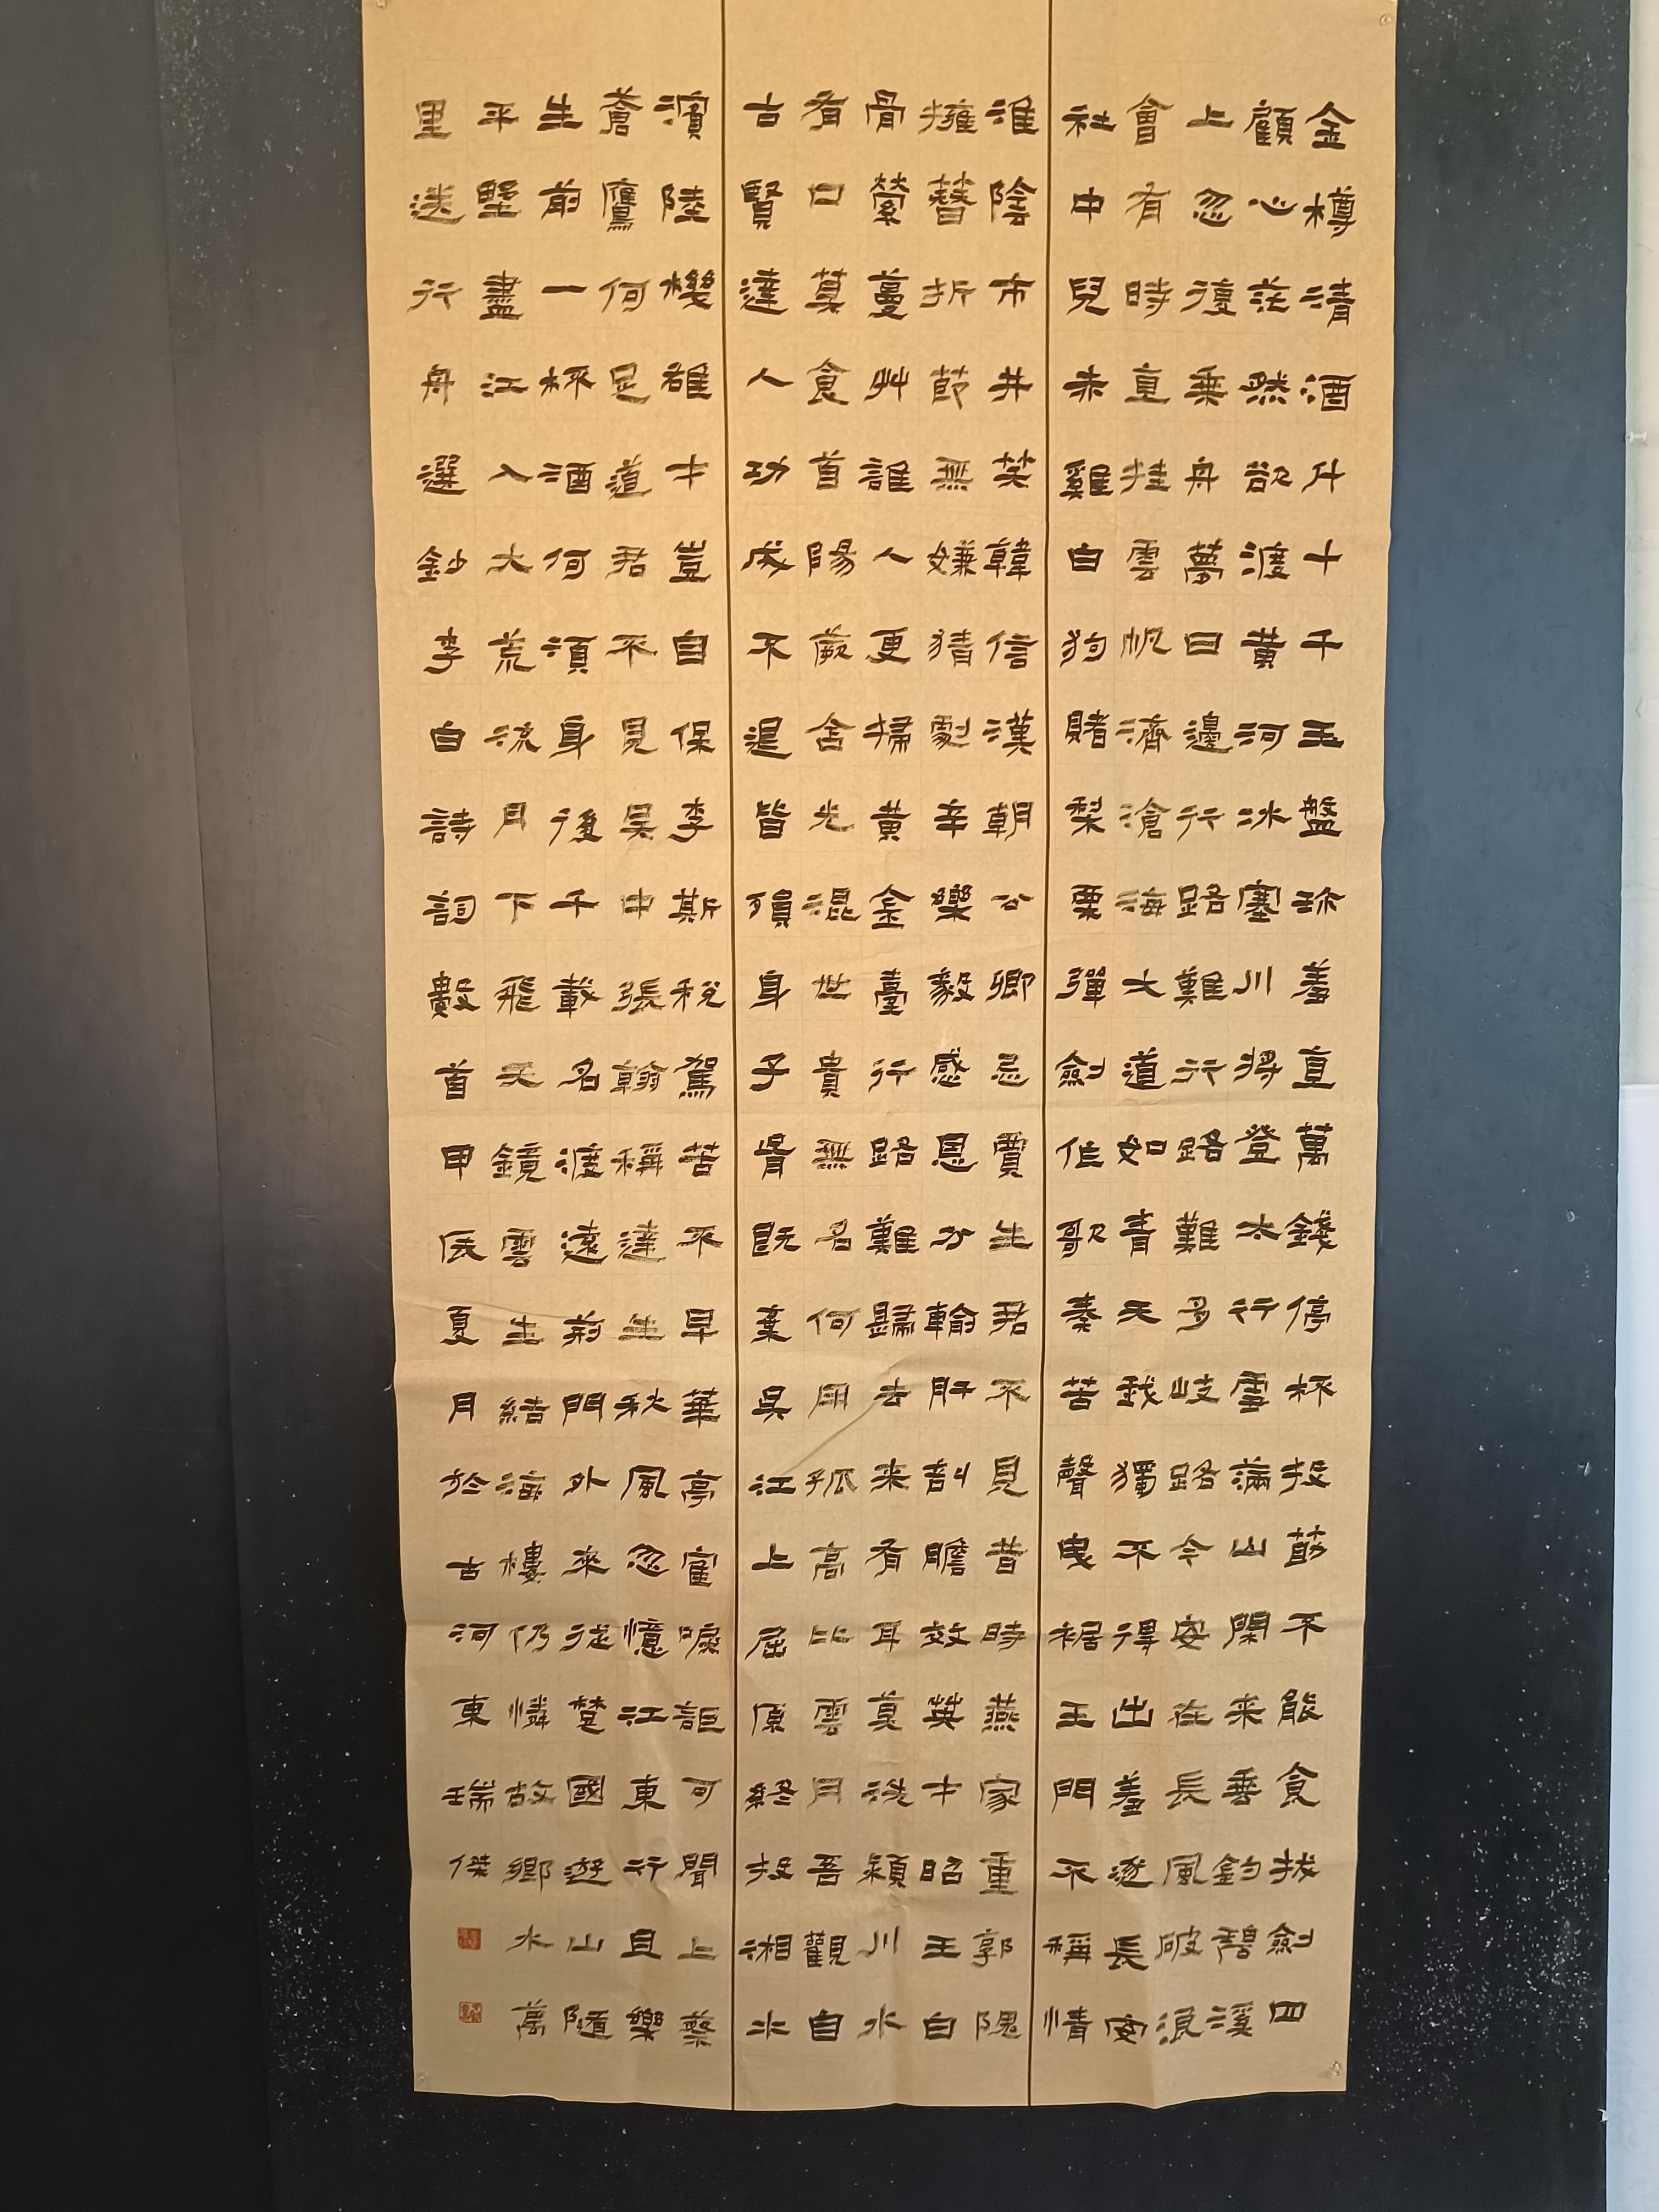 金樽清酒斗十千玉盤珍羞直萬錢停杯投筯不能食拔劍四
顧心茫然欲渡黃河冰塞川將登太行雪滿山閑来垂釣碧溪
上忽復乘舟夢日邊行路難行路難多岐路今安在長風破浪
會有時直挂雲帆濟滄海大道如青天我獨不得出羞逐長安
社中兒赤雞白狗賭梨栗彈劍作歌奏苦聲曳裾王門不稱情
淮陰市井笑韓信漢朝公卿忌賈生君不見昔時燕家重郭隗
擁篲折節無嫌猜劇辛樂毅感恩分輸肝剖膽效英才昭王白
骨縈蔓艸誰人更掃黃金臺行路難歸去来有耳莫洗潁川水
有口莫食首陽蕨含光混世貴無名何用孤高比雲月吾觀自
古賢達人功成不退皆殞身子胥既棄吳江上屈原終投湘水
濱陸機雄才豈自保李斯稅駕苦不早華亭寉唳詎可聞上蔡
蒼鷹何足道君不見吳中張翰稱達生秋風忽憶江東行且樂
生前一杯酒何須身後千載名渡遠荊門外來從楚國遊山隨
平野盡江入大荒流月下飛天鏡雲生結海樓仍憐故鄉水萬
里送行舟選鈔李白詩詞數首甲辰夏月於古河東瑞傑